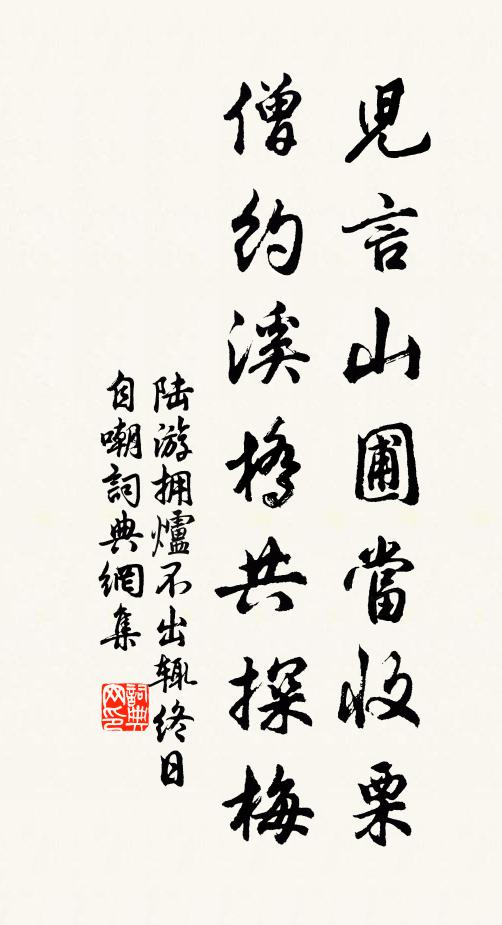 児言山圃當收栗
僧約溪橋共探梅
陆游拥爐不出辄终日
自嘲詞典網集
詞典
网印